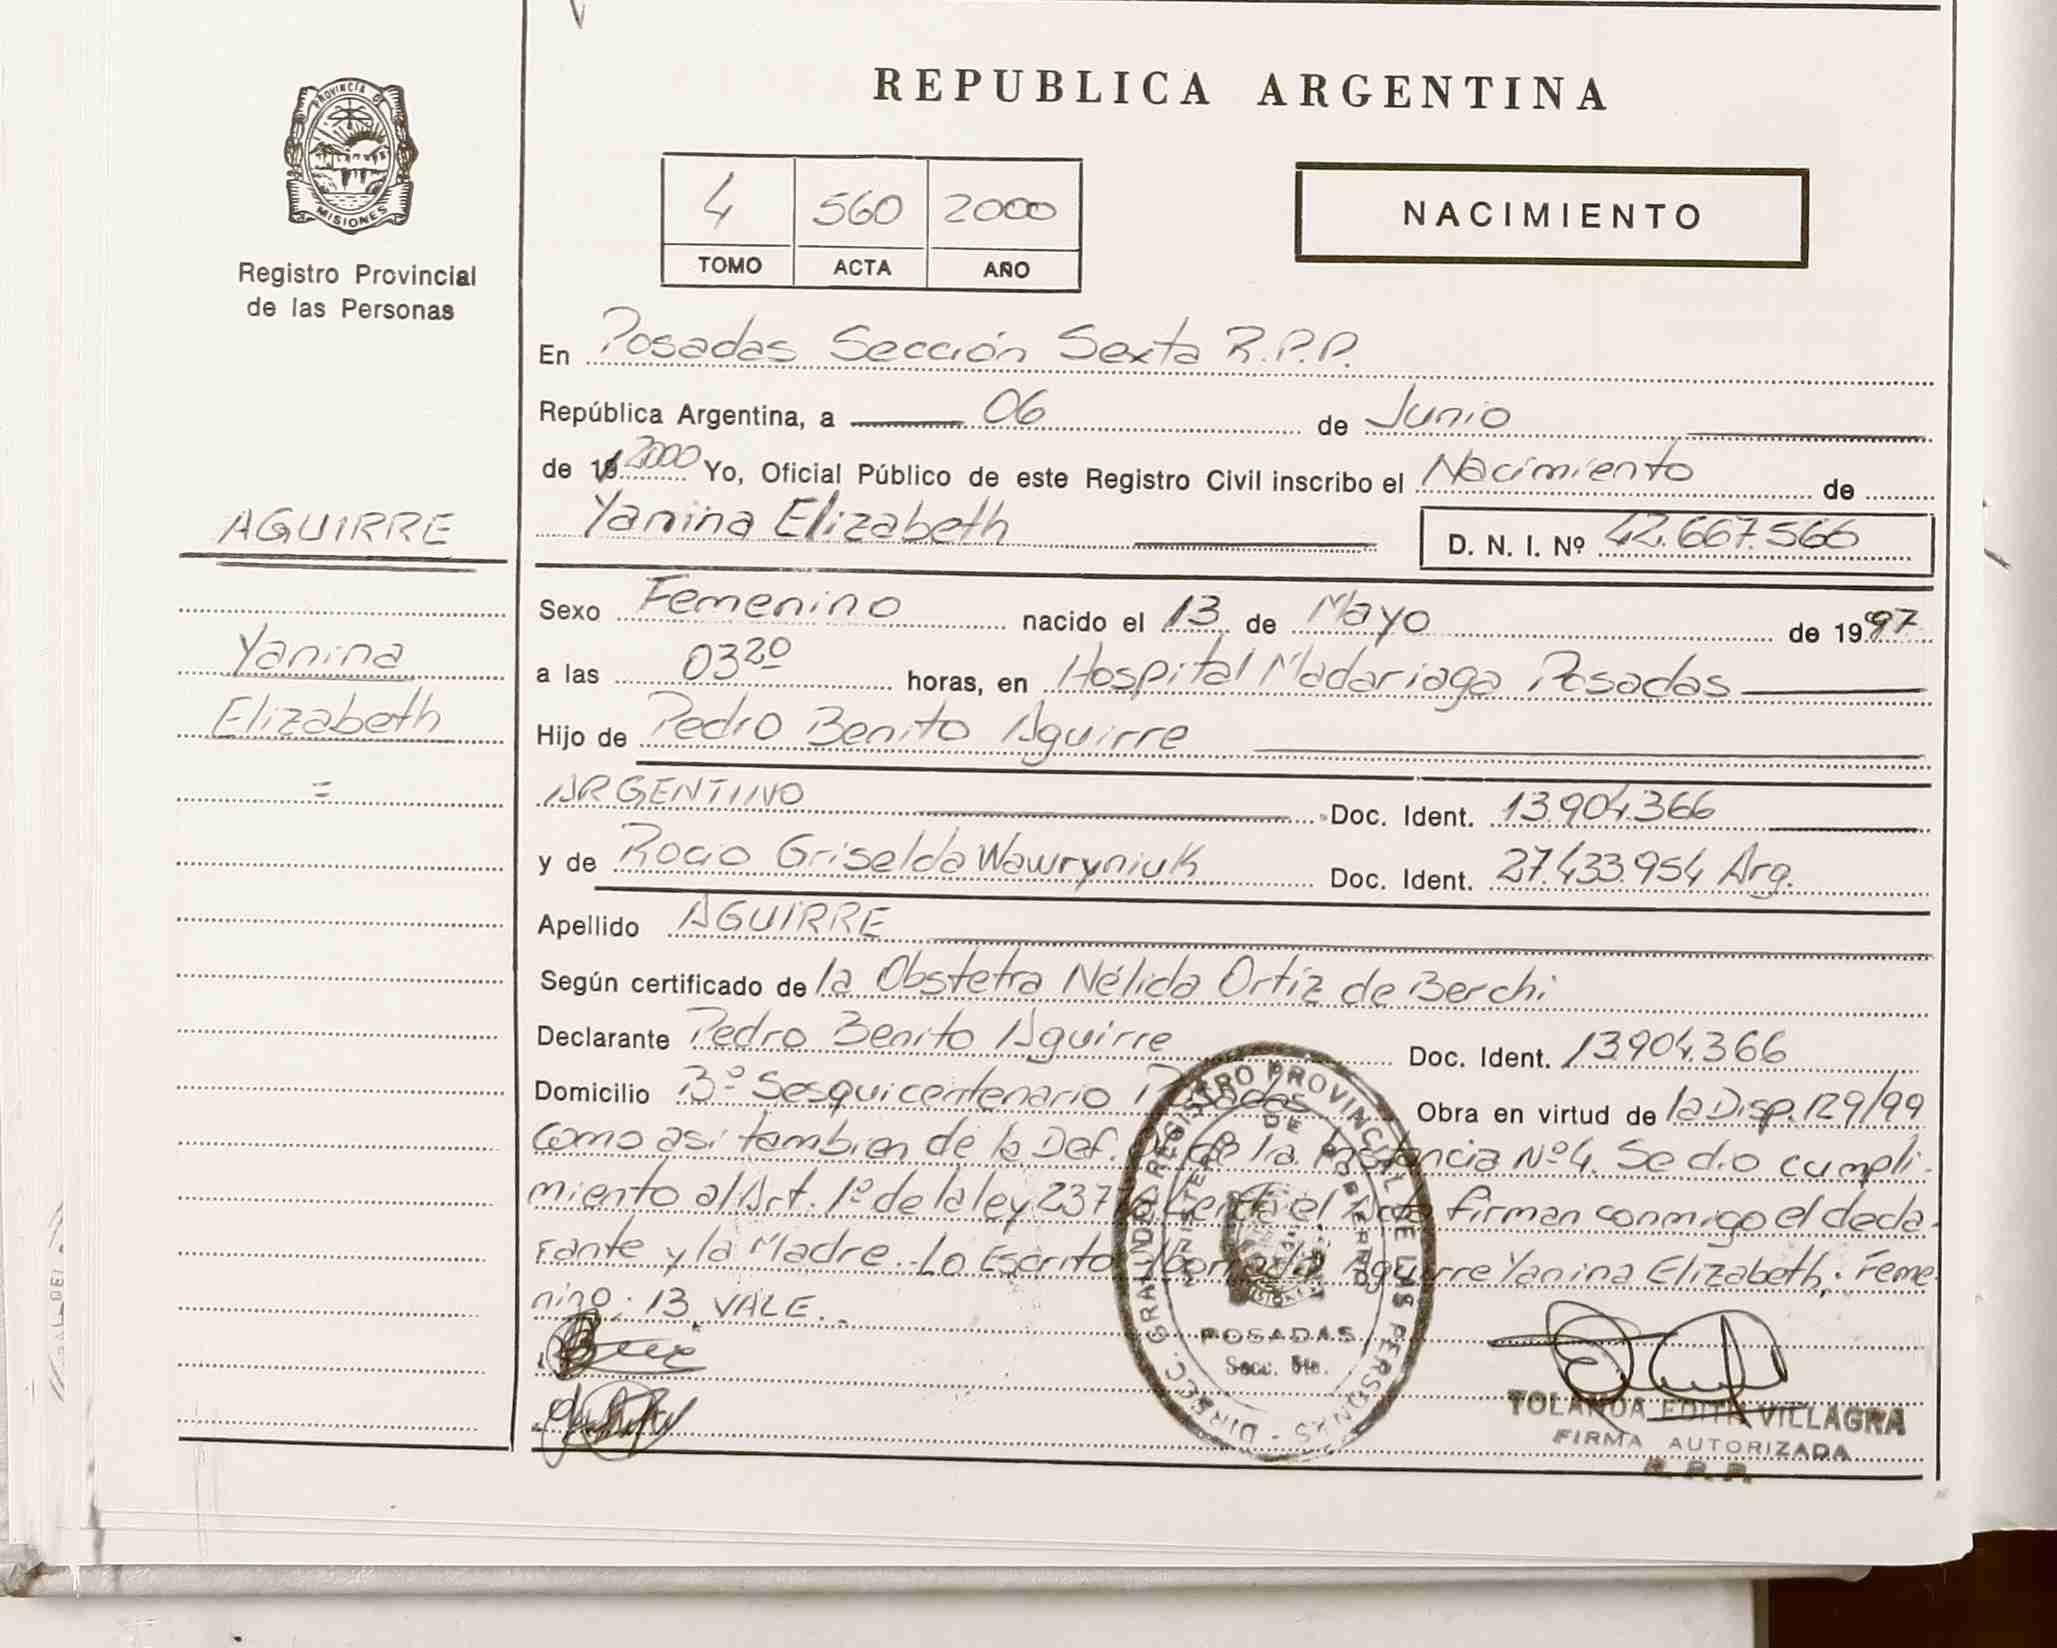 REPUBLICA ARGENTINA
PROVINCIA DE
MISIONES
Registro Provincial
de las Personas
4 560 2000
TOMO ACTA AÑO
NACIMIENTO
En Posadas Sección Sexta R.P.P.
República Argentina, a 06 de Junio
de 19 2000 Yo, Oficial Público de este Registro Civil inscribo el Nacimiento de
Yanina Elizabeth D. N. I. Nº 42.667.566
AGUIRRE
Yanina
Elizabeth
=
Sexo Femenino nacido el 13 de Mayo de 1997
a las 03 20 horas, en Hospital Madariaga Posadas
Hijo de Pedro Benito Aguirre
ARGENTINO Doc. Ident. 13.904.366
y de Rocio Griselda Wawryniuk Doc. Ident. 27.433.954 Arg.
Apellido AGUIRRE
Según certificado de la Obstetra Nélida Ortíz de Berchi
Declarante Pedro Benito Aguirre Doc. Ident. 13.904.366
Domicilio Bº Sesquicentenario Posadas Obra en virtud de la Disp. 129/99
como asi tambien de la Def. de 1ra. Instancia Nº 4. Se dio cumpli-
miento al Art. 1º de la ley el firman conmigo el decla-
rante y la Madre. Lo Escrito Aguirre Yanina Elizabeth; Feme-
nino; 13. VALE.
DIRECC. GRAL. DEL REGISTRO PROVINCIAL DE LAS PERSONAS
MINISTERIO DE GOBIERNO
POSADAS
Secc.
EDITH VILLAGRA
FIRMA AUTORIZADA
R. P. P.